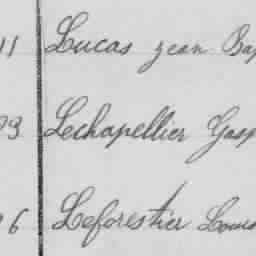 11 Lucas Jean Bap
93 Lechapellier Gasp
6 Leforestier Louis